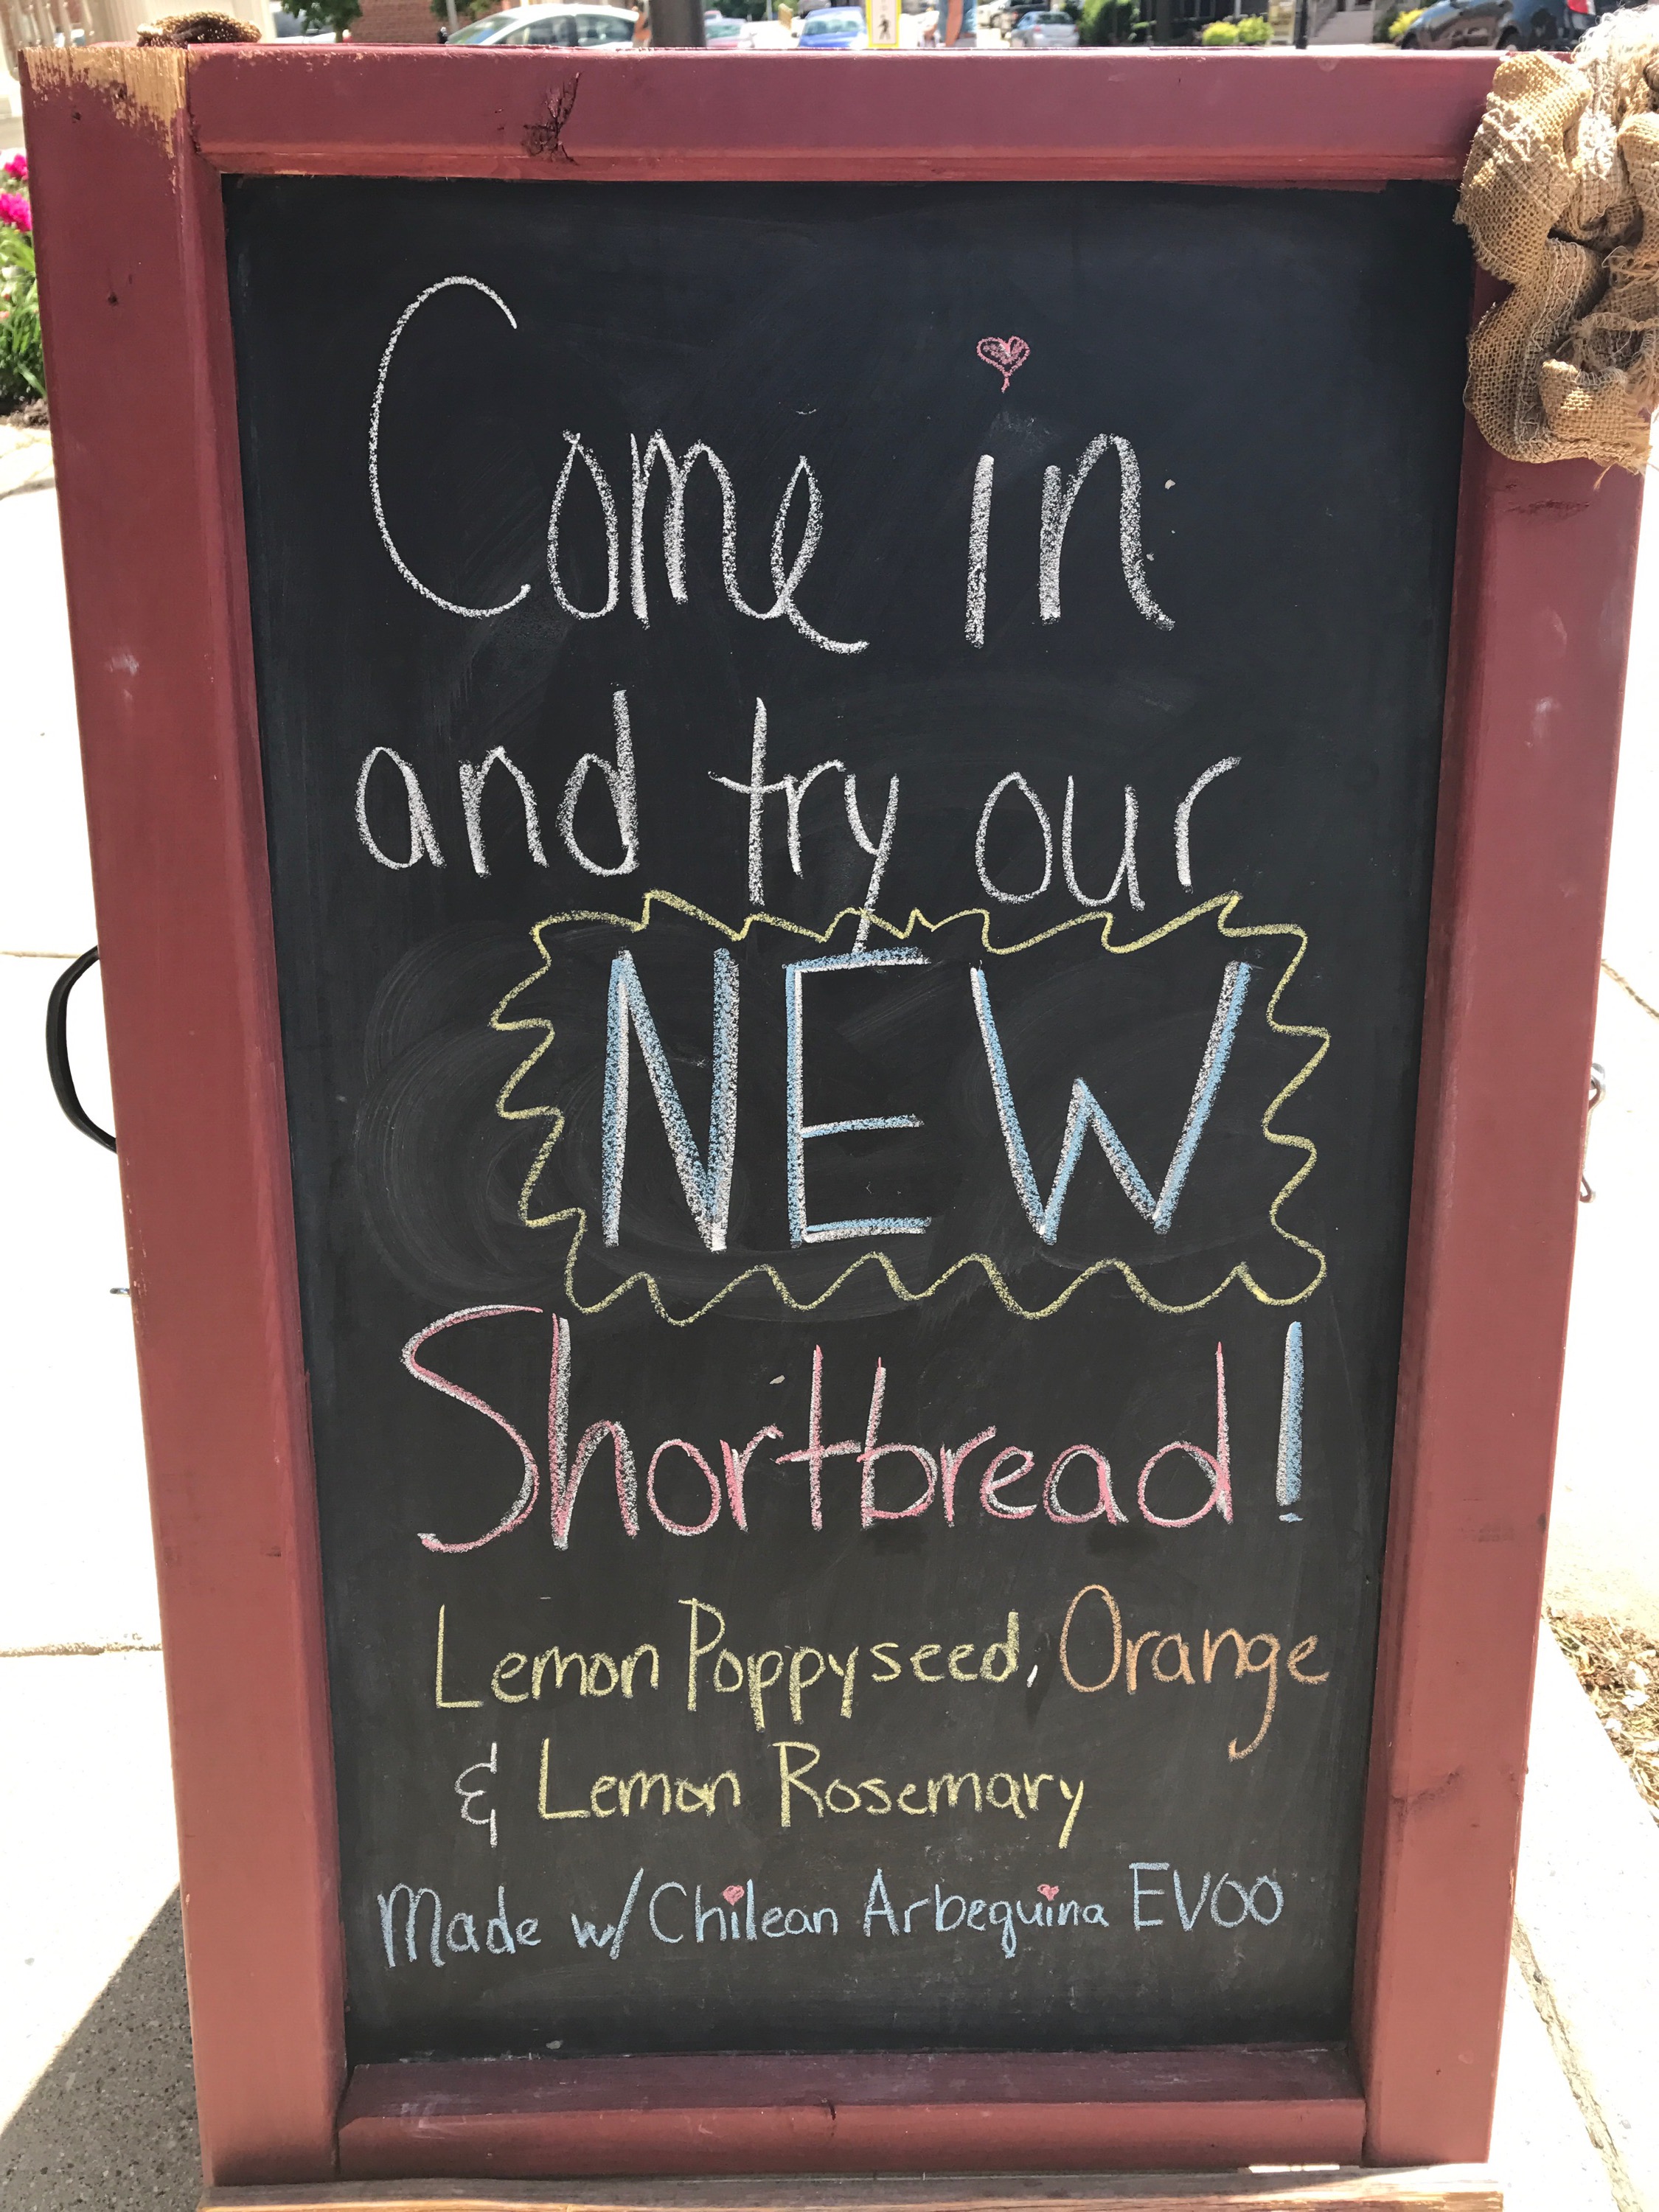 Come in
and try our
NEW
Shortbread!
Lemon Poppyseed, Orange
& Lemon Rosemary
Made w/ Chilean Arbequina EVOO